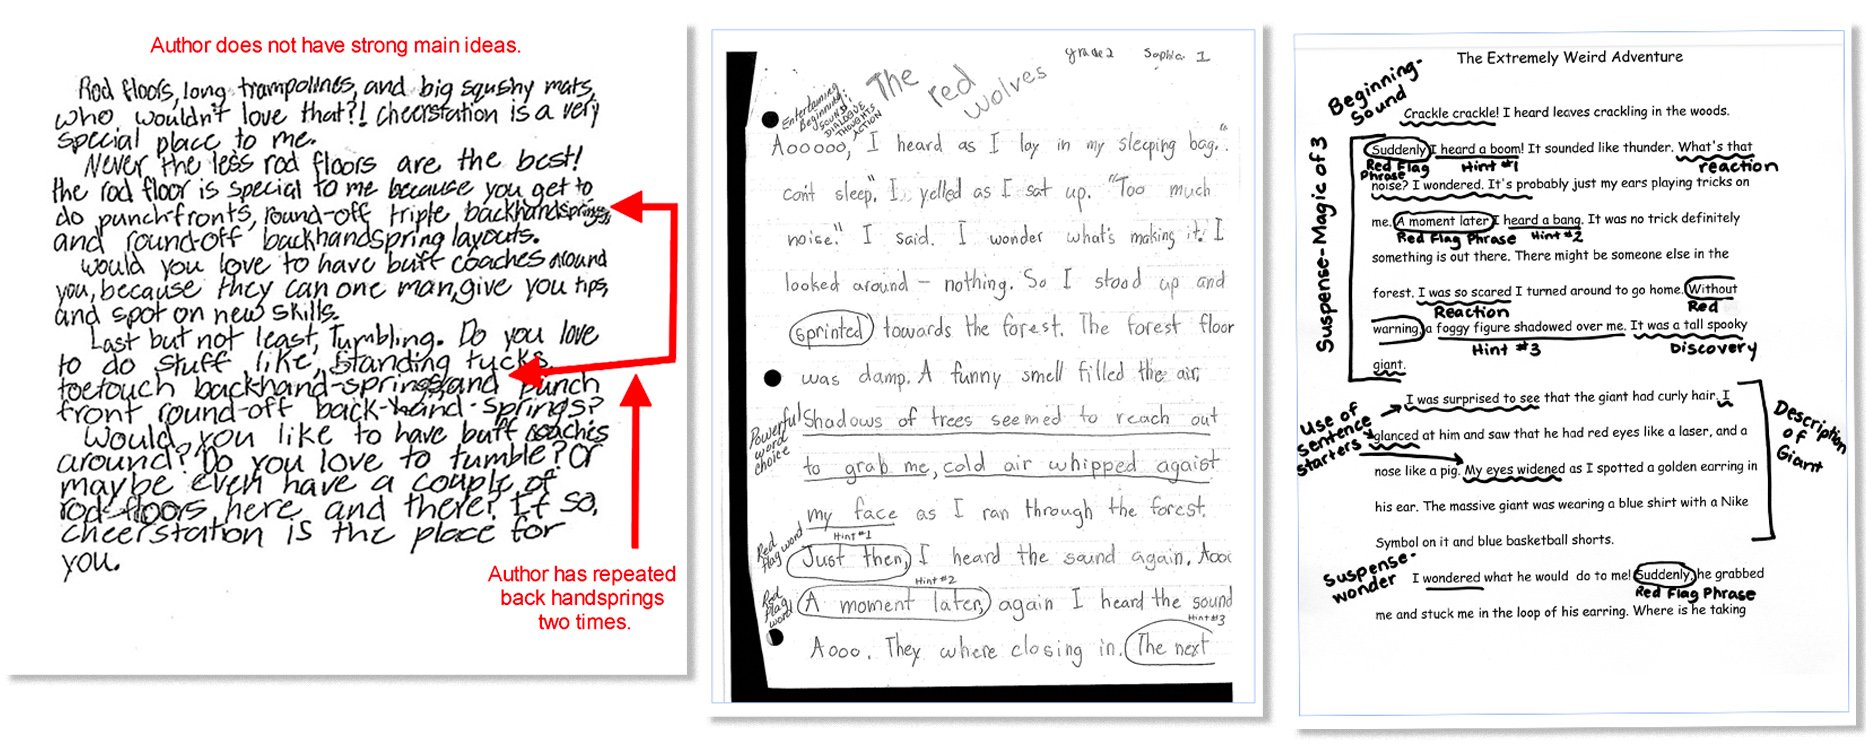 Author does not have strong main ideas.
Rod floors, long trampolines, and big squshy mats,
who wouldn't love that?! Cheerstation is a very
special place to me.
Never the less rod floors are the best!
the rod floor is special to me because you get to
do punch-fronts, round-off triple backhandsprings,
and round-off backhandspring layouts.
Would you love to have buff coaches around
you, because they can one man, give you tips,
and spot on new skills.
Last but not least, Tumbling. Do you love
to do stuff like, standing tucks,
toetouch backhand-springs, and punch
front round-off back-hand-springs?
Would you like to have buff coaches
around? Do you love to tumble? Or
maybe even have a couple of
rod-floors here and there? If so,
cheerstation is the place for
you.
Author has repeated
back handsprings
two times.
grade 2 Sophia 1
The red wolves
Entertaining
Beginning:
SOUND
DIALOGUE
THOUGHTS
ACTION
Aooooo, I heard as I lay in my sleeping bag. "I
can't sleep." I yelled as I sat up. "Too much
noise." I said. I wonder what's making it. I
looked around – nothing. So I stood up and
sprinted towards the forest. The forest floor
was damp. A funny smell filled the air.
Powerful
word
choice
Shadows of trees seemed to reach out
to grab me, cold air whipped agaist
my face as I ran through the forest.
Red
flag word
Hint #1
Just then, I heard the sound again. Aooo
Hint #2
Red
flag
word
A moment later, again I heard the sound
Hint #3
Aooo. They where closing in. The next
The Extremely Weird Adventure
Beginning-
Sound
Crackle crackle! I heard leaves crackling in the woods.
Suspense-Magic of 3
Suddenly I heard a boom! It sounded like thunder. What's that
Red Flag Phrase Hint #1 reaction
noise? I wondered. It's probably just my ears playing tricks on
me. A moment later I heard a bang. It was no trick definitely
Red Flag Phrase Hint #2
something is out there. There might be someone else in the
forest. I was so scared I turned around to go home. Without
Reaction Red
warning, a foggy figure shadowed over me. It was a tall spooky
Hint #3 Discovery
giant.
I was surprised to see that the giant had curly hair. I
Use of
sentence
starters
glanced at him and saw that he had red eyes like a laser, and a
nose like a pig. My eyes widened as I spotted a golden earring in
his ear. The massive giant was wearing a blue shirt with a Nike
Symbol on it and blue basketball shorts.
Description
of
Giant
Suspense-
wonder
I wondered what he would do to me! Suddenly, he grabbed
Red Flag Phrase
me and stuck me in the loop of his earring. Where is he taking